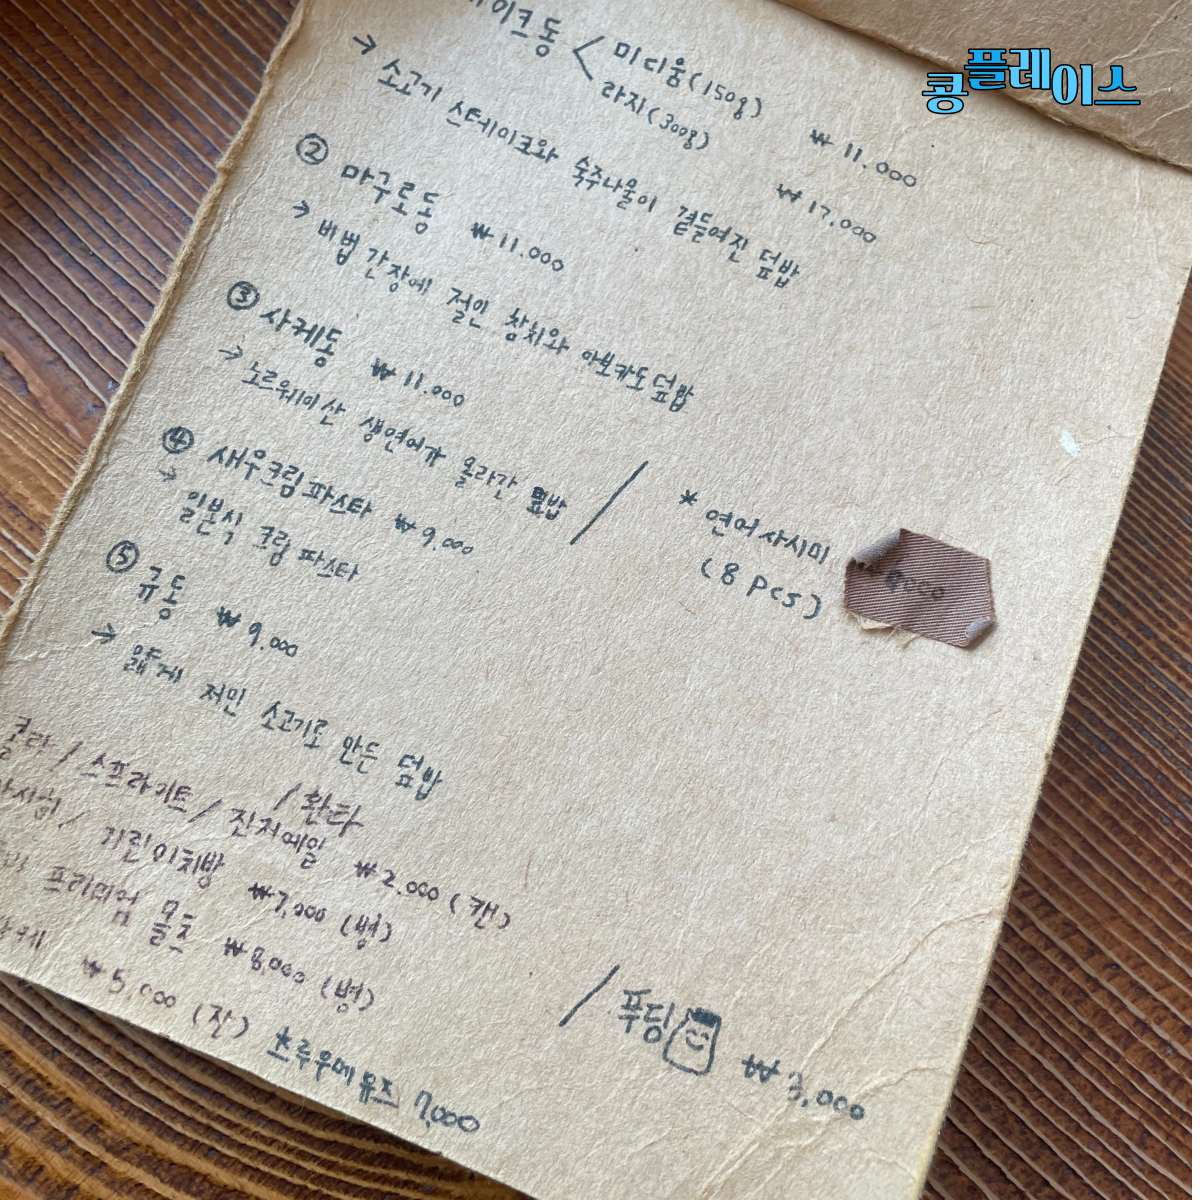 콩플레이스
이크동 < 미디움(150g) ₩11.000
라지(300g) ₩17.000
→ 소고기 스테이크와 숙주나물이 곁들여진 덮밥
② 마구로동 ₩11.000
→ 비법 간장에 절인 참치와 아보카도덮밥
③ 사케동 ₩11.000
→ 노르웨이산 생연어가 올라간 덮밥 / * 연어사시미
(8 pcs)
④ 새우크림파스타 ₩9.000
→ 일본식 크림 파스타
⑤ 규동 ₩9.000
→ 얇게 저민 소고기로 만든 덮밥
콜라 / 스프라이트 / 진저에일 / 환타 ₩2.000 (캔)
아사히 / 기린이치방 ₩7,000 (병)
프리미엄 몰츠 ₩8,000 (병)
₩5,000 (잔) / 푸딩 ₩3,000
*트루우에뮤즈 7,000